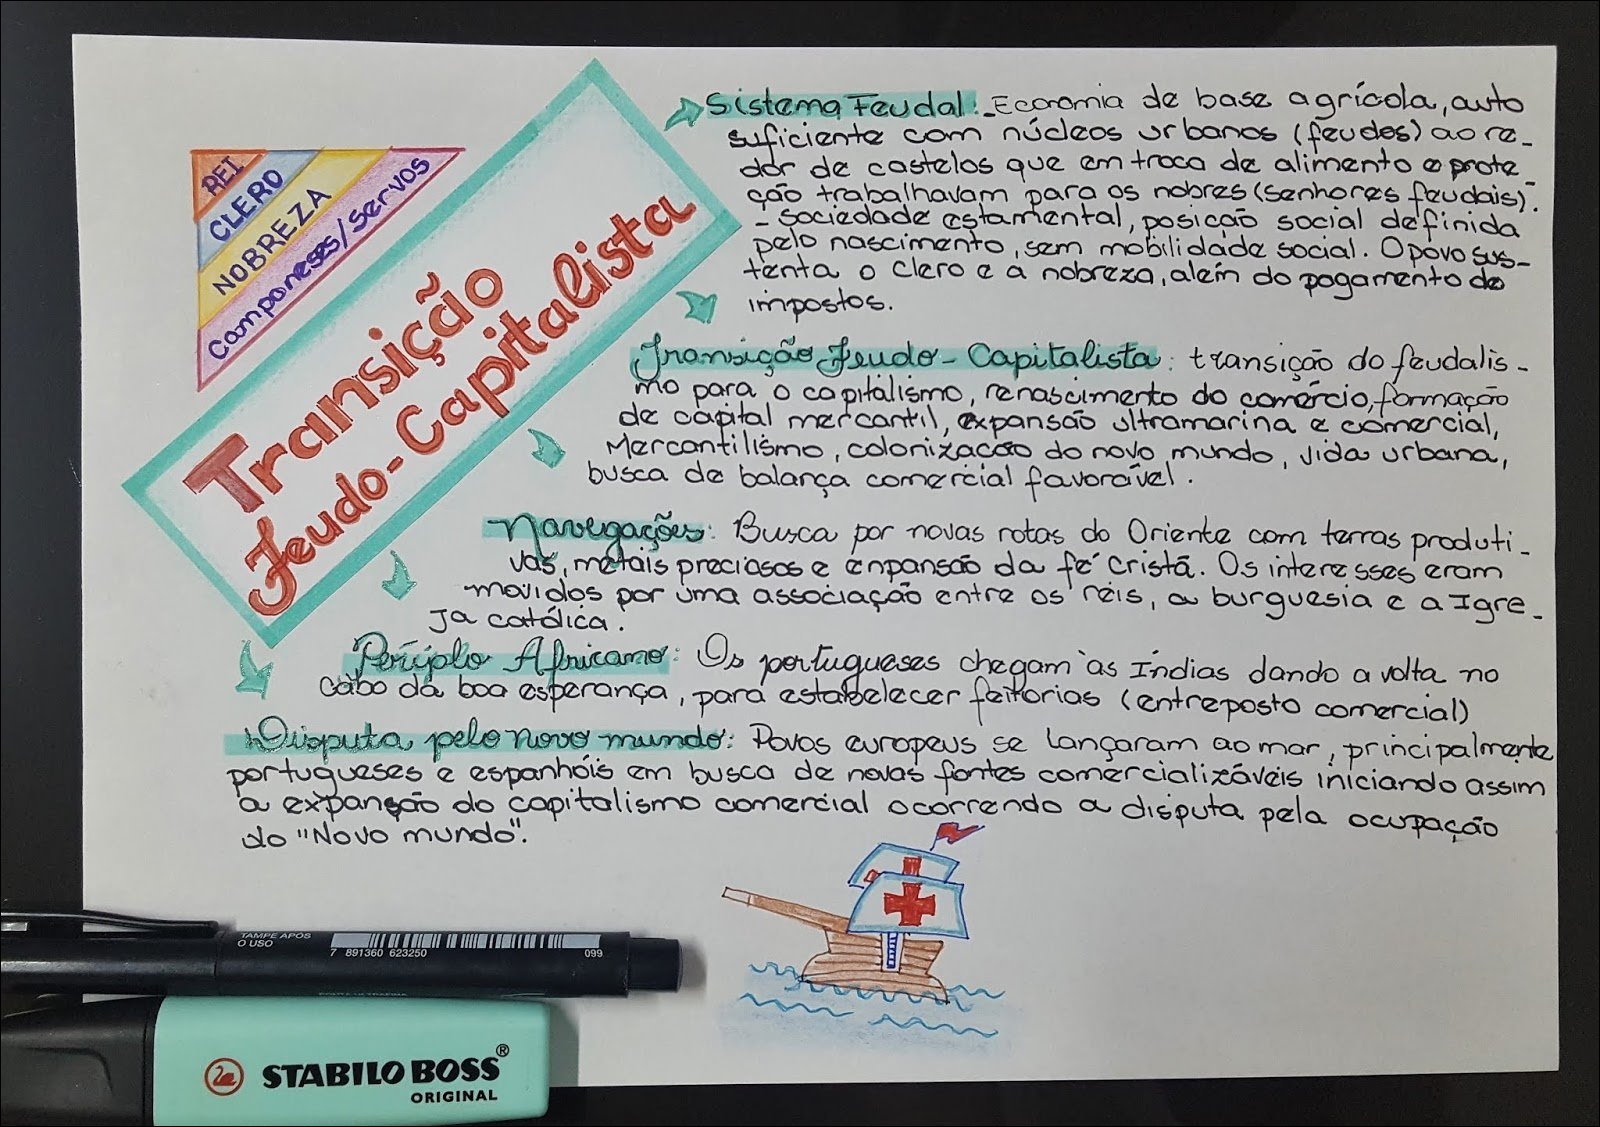 REI
CLERO
NOBREZA
Camponeses/Servos
Transição
Feudo-Capitalista
Sistema Feudal: - Economia de base agrícola, auto
suficiente com núcleos urbanos (feudos) ao re-
dor de castelos que em troca de alimento e prote-
ção trabalhavam para os nobres (senhores feudais).
- Sociedade estamental, posição social definida
pelo nascimento, sem mobilidade social. O povo sus-
tenta o clero e a nobreza, além do pagamento de
impostos.
Transição Feudo-Capitalista: transição do feudalis-
mo para o capitalismo, renascimento do comércio, formação
de capital mercantil, expansão ultramarina e comercial,
Mercantilismo, colonização do novo mundo, vida urbana,
busca de balança comercial favorável.
Navegações: Busca por novas rotas do Oriente com terras produti-
vas, metais preciosos e enpansão da fé cristã. Os interesses eram
movidos por uma associação entre os reis, a burguesia e a Igre-
ja católica.
Périplo Africano: Os portugueses chegam às Índias dando a volta no
cabo da boa esperança, para estabelecer feitorias (entreposto comercial)
Disputa pelo novo mundo: Povos europeus se lançaram ao mar, principalmente
portugueses e espanhóis em busca de novas fontes comercializáveis iniciando assim
a expansão do capitalismo comercial ocorrendo a disputa pela ocupação
do "Novo mundo".
TAMPE APÓS
O USO
7 891360 623250
099
STABILO BOSS®
ORIGINAL